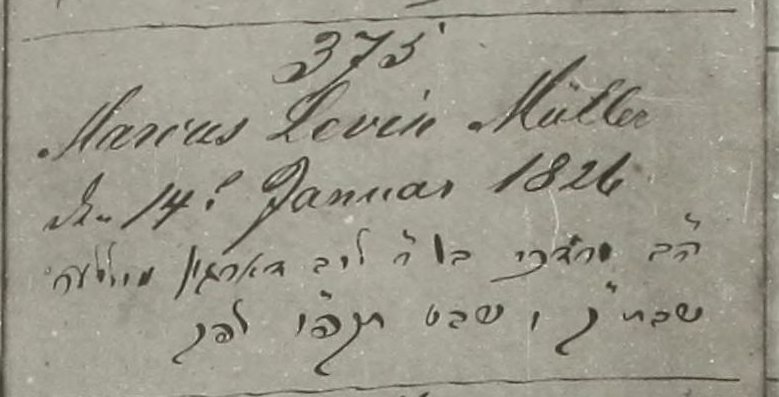 375
Marcus Levin Müller
den 14t Januar 1826
ה"ב מרדכי ב"ה ליב
שבת"ק ו שבט תקפ"ו לפק